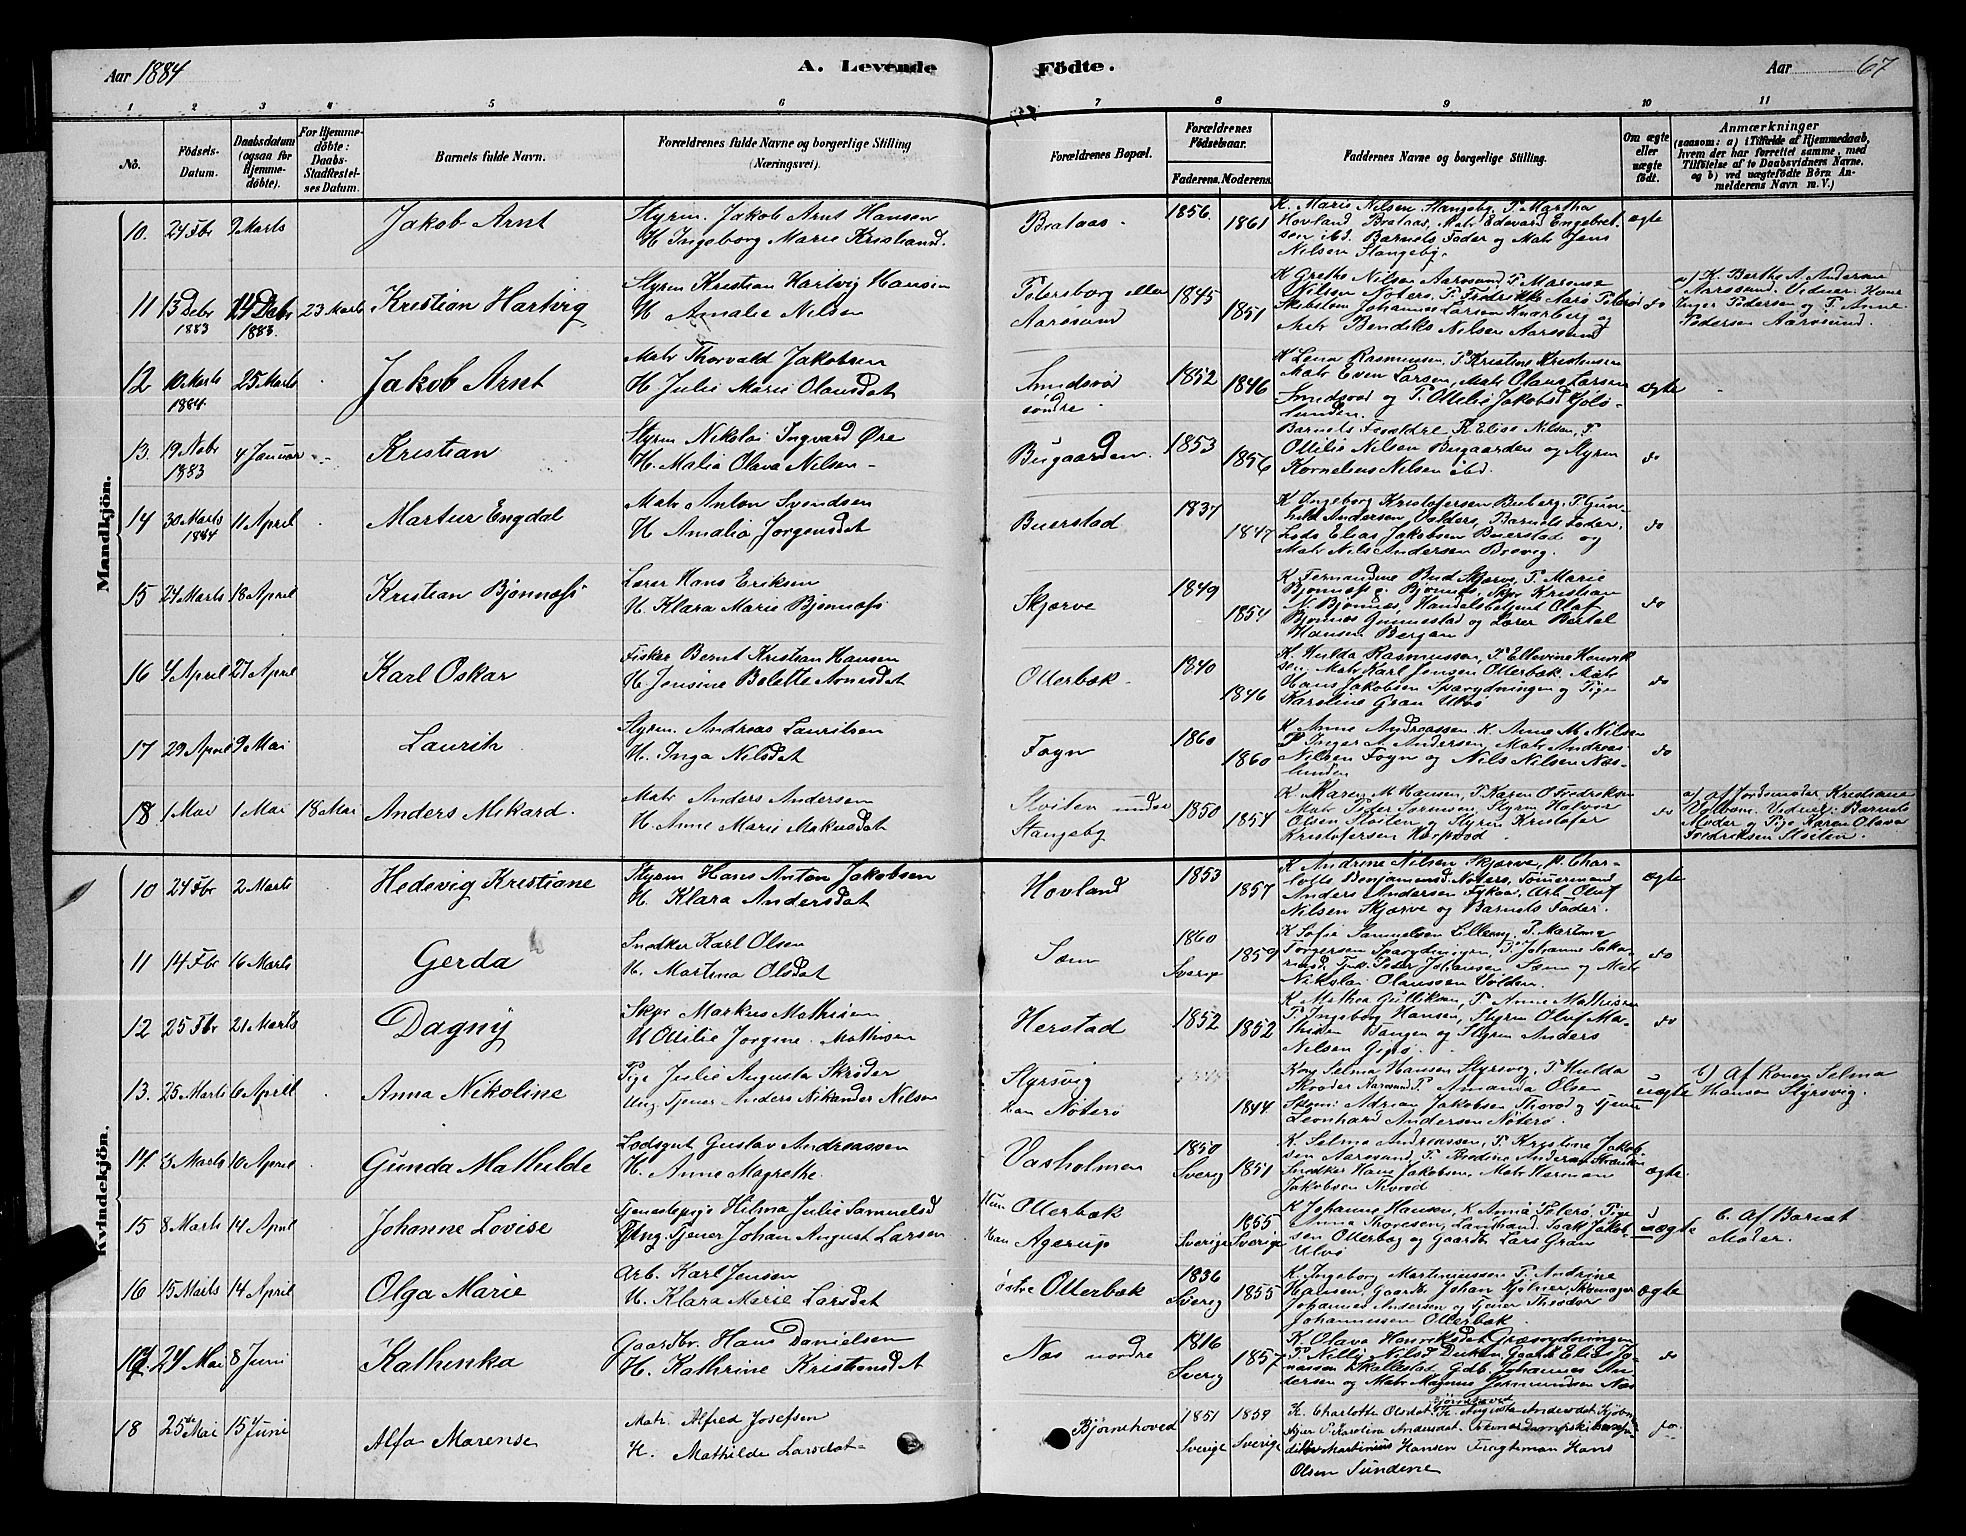 Aar 1884
A. Levende Födte.
Aar 67
1 2 3 4 5 6 7 8 9 10 11
No.
Födsels-
Datum.
Daabsdatum
(ogsaa for
Hjemme-
döbte).
For Hjemme-
döbte:
Daabs-
Stadfæstel-
ses Datum.
Barnets fulde Navn.
Forældrenes fulde Navne og borgerlige Stilling
(Næringsvei).
Forældrenes Bopæl.
Forældrenes
Födselsaar.
Faderens. Moderens.
Faddernes Navne og borgerlige Stilling.
Om ægte
eller
uægte
födt.
Anmærkninger
(saasom: a) i Tilfælde af Hjemmedaab,
hvem der har forrettet samme, med
Tilföielse af to Daabsvidners Navne,
og b) ved uægtefödte Börn An-
melderens Navn m. V.)
Mandkjön.
10. 24 Fbr 2 Marts Jakob Arnt
Styrm. Jakob Arnt Hansen
H. Ingeborg Marie Kristiansd.
Brataas. 1856. 1861
K. Marie Nilsen Stangeby, P. Martha
Hovland Brataas, Matr Edevard Engebret-
sen ibd. Barnets Fader og Matr Jens
Nilsen Stangeby.
ægte
11 13 Debr 1883 14 Debr 1883. 23 Marts Kristian Hartvig
Styrm Kristian Hartvig Hansen
H Amalie Nilsen
Petersborg eller
Aarøsund 1845 1851
K Grethe Nilsen Aarøsund P. Marense
Nilsen Noterø, P. Fredrikke Aarø Peterø
Johannes Larsen Knarberg og
Matr Bendiks Nilsen Aarøsund
do
a) K. Berthe A. Andersen
Aarøsund. Vidner: Kone
Inger Pedersen og P. Anne
Pedersen Aarøsund.
12 10 Marts 1884. 25 Marts Jakob Arnt
Matr Thorvald Jakobsen
H. Julie Marie Olausdat
Smidsrød
søndre 1852 1846
K Lena Rasmussen, P Kristine Kristensen
Matr Even Larsen, Matr Olaus Larsen
Smidsrød og P. Ottilie Jakobsd Gjølø-
lunden.
ægte
13. 19 Nobr 1883 4 Januar Kristian
Styrm Nikolai Ingvard Øre
H. Malia Olava Nilsen
Bugaarden. 1853 1856
Barnets Forældre K. Elise Nilsen, P
Ottilie Nilsen Bugaarden og Styrm
Kornelius Nilsen ibd.
do
14 30 Marts 1884 11 April Martur Engdal
Matr Anton Svendsen
H Amalia Jørgensdat
Buerstad 1837 1847
K Ingeborg Kristofersen Buberg, P Gun-
hild Andersen Valders, Barnets Fader,
Lods Elias Jakobsen Buerstad og
Matr Nils Andersen Brevig.
do
15 24 Marts 18 April Kristian Bjønnæss
Lærer Hans Eriksen
H. Klara Marie Bjønnæss
Skjærve 1849 1854
K. Fernandine Bud Skjærve, P. Marie
Bjønnæss, Skpr Kristian
N. Bjønnes, Handelsbetjent Olaf
Bjønnes Gunnestad og Lærer Bertel
Hansen Bergan
do
16 4 April 27 April Karl Oskar
Fisker Bernt Kristian Hansen
H. Jensine Bolette Arnesdat
Otterbæk. 1840 1846
K. Hulda Rasmussen, P. Ellevine Henrik-
sen, Matr Karl Jensen Otterbæk, Matr
Hans Jakobsen Sparydningen og Pige
Karoline Gran Ulvø
do
17 29 April 9 Mai Laurits
Styrm. Andreas Lauritsen
H. Inga Nilsdat
Fogn 1860 1860
K Anne Andreassen, K. Anne M. Nilsen
P Inger A Andersen, Matr Andreas
Nilsen Fogn og Nils Nilsen Næs-
lunden
do
18. 1 Mai 1 Mai 18 Mai Anders Mikard.
Matr Anders Andersen
H. Anne Marie Makusdat
Støiten under
Stangeby 1850 1854
K. Maren M Hansen, P. Karen O Fredriksen
Matr Peder Sørensen, Styrm Halvor
Olsen Støiten og Styrm Kristofer
Kristofersen Torprød
do
a) af Jordemoder Kristiane
Vidner: Barnets
Moder og Pige Karen Olava
Fredriksen Støiten.
Kvindekjön.
10 24 Fbr 2 Marts Hedevig Kristiane
Styrm Hans Anton Jakobsen
H. Klara Andersdat
Hovland 1853 1857
K Andrine Nilsen Skjærve, P. Char-
lotte Benjaminsd. Nøterø, Tømermand
Anders Andersen Fykaas, Arb. Oluf
Nilsen Skjærve og Barnets Fader.
ægte
11 14 Fbr 16 Marts Gerda
Snedker Karl Olsen
H. Martina Olsdat
Sem 1860 Sverige 1859
K Sofie Samuelsen Lilleeng, P. Martine
Torgersen Sparydningen, P. Johanne Saka-
riasd. Tjk. Peter Johansen Sem og Matr
Nikolai Olaussen Volden.
do
12 25 Fbr 21 Marts Dagny
Skpr Markus Mathisen
H Ottilie Jørgine Mathisen
Herstad 1852 1852
K. Mathea Gulliksen, P. Anne Mathisen
P. Ingeborg Hansen, Styrm Oluf Ma-
thisen Tangen og Styrm Anders
Nilsen Gipø.
do
13. 25 Marts 6 April Anna Nikoline
Pige Julie Augusta Skrøder
Ung. Tjener Anders Nikander Nilsen
Styrsvig
han Nøterø 1844
Kone Selma Hansen Styrsvig, P Hulda
Skrøder Aarøsund P Amanda Olsen
Adrian Jakobsen Thorød og Tjener
Leonhard Andersen Nøterø.
uægte
b) Af Konen Selma
Hansen Styrsvig.
14. 3 Marts 10 April Gunda Mathilde
Lodsgut Gustav Andreassen
H. Anne Magrethe.
Vasholmen 1850 Sverig 1851
K. Selma Andreassen, P. Kristine Jakob-
sen Aarøsund, P Bredine Andersen
Snedker Hans Jakobsen, Matr Herman
Jakobsen Thorød
ægte
15 8 Marts 14 April Johanne Lovise
Tjenestepige Hilma Julie Samuelsd
Ung. Tjener Johan August Larsen
Hun Otterbæk
Han Agerup Sverige 1855 Sverige
K Johanne Hansen, K Anna Peterø, Pige
Anna Thoresen, Landhand. Isak Jakob-
sen Otterbæg og Gaardb. Lars Gran
Ulvø
uægte
b. Af Barnet
Moder.
16 15 Marts 14 April Olga Marie
Arb. Karl Jensen
H. Klara Marie Larsdat
østre Otterbæk 1836 Sverig 1855
K. Ingeborg Martiniussen P. Andrine
Hansen, Gaardb Johan Kjølner, Skomager
Johannes Andersen og Tjener Theodor
Johannessen Otterbæk.
ægte
17. 24 Mai 8 Juni Kathinka
Gaardbr. Hans Danielsen
H. Kathrine Kristensdat
Næs nordre 1816 Sverig 1857
K. Olava Henriksdat Græsrydningen
P. Nilly Nilsd Duken, Gaardb Elias Jo-
nassen Skallestad, Gdb. Johannes An-
dersen og Matr Magnus Jørmundsen Næs
do
18 25de Mai 15 Juni Alfa Marense
Matr. Alfred Josefsen
H. Mathilde Larsdat
Bjørnehoved 1851 Sverige 1859 Sverige
K. Charlotte Olsdat Bjørnehoved K. Augusta Andersdat
P. Karoline Andersdat.
Martinius Hansen Fragtmand Hans
Olsen Sundene
do.